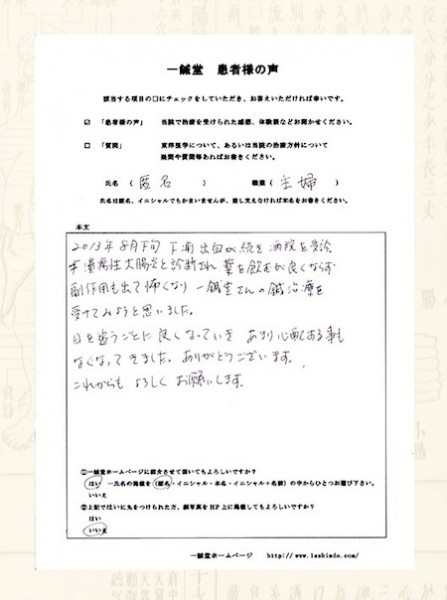 一鍼堂 患者様の声
該当する項目の□にチェックをしていただき、お答えいただければ幸いです。
☑ 「患者様の声」 当院で治療を受けられた感想、体験談などお聞かせください。
□ 「質問」 東洋医学について、あるいは当院の治療方針について
疑問や質問等あればお書きください。
氏名 ( 匿名 ) 職業 ( 主婦 )
氏名は匿名、イニシャルでもかまいませんが、差し支えなければ本名をお書きください。
本文
2013年8月下旬 下痢 出血が続き 病院を受診
潰瘍性大腸炎と診断され 薬を飲むが良くならず
副作用も出て怖くなり 一鍼堂さんの鍼治療を
受けてみようと思いました。
日を追うごとに良くなっていき あまり心配する事も
なくなってきました。ありがとうございます。
これからも よろしく お願いします。
①一鍼堂ホームページに紹介させて頂いてもよろしいですか?
はい ―氏名の掲載を(匿名・イニシャル・本名・イニシャル+名前)の中からひとつお選び下さい。
いいえ
②上記ではいに丸をつけられた方、顔写真をHP上に掲載してもよろしいですか?
はい
いいえ
一鍼堂ホームページ http://www.isshindo.com/